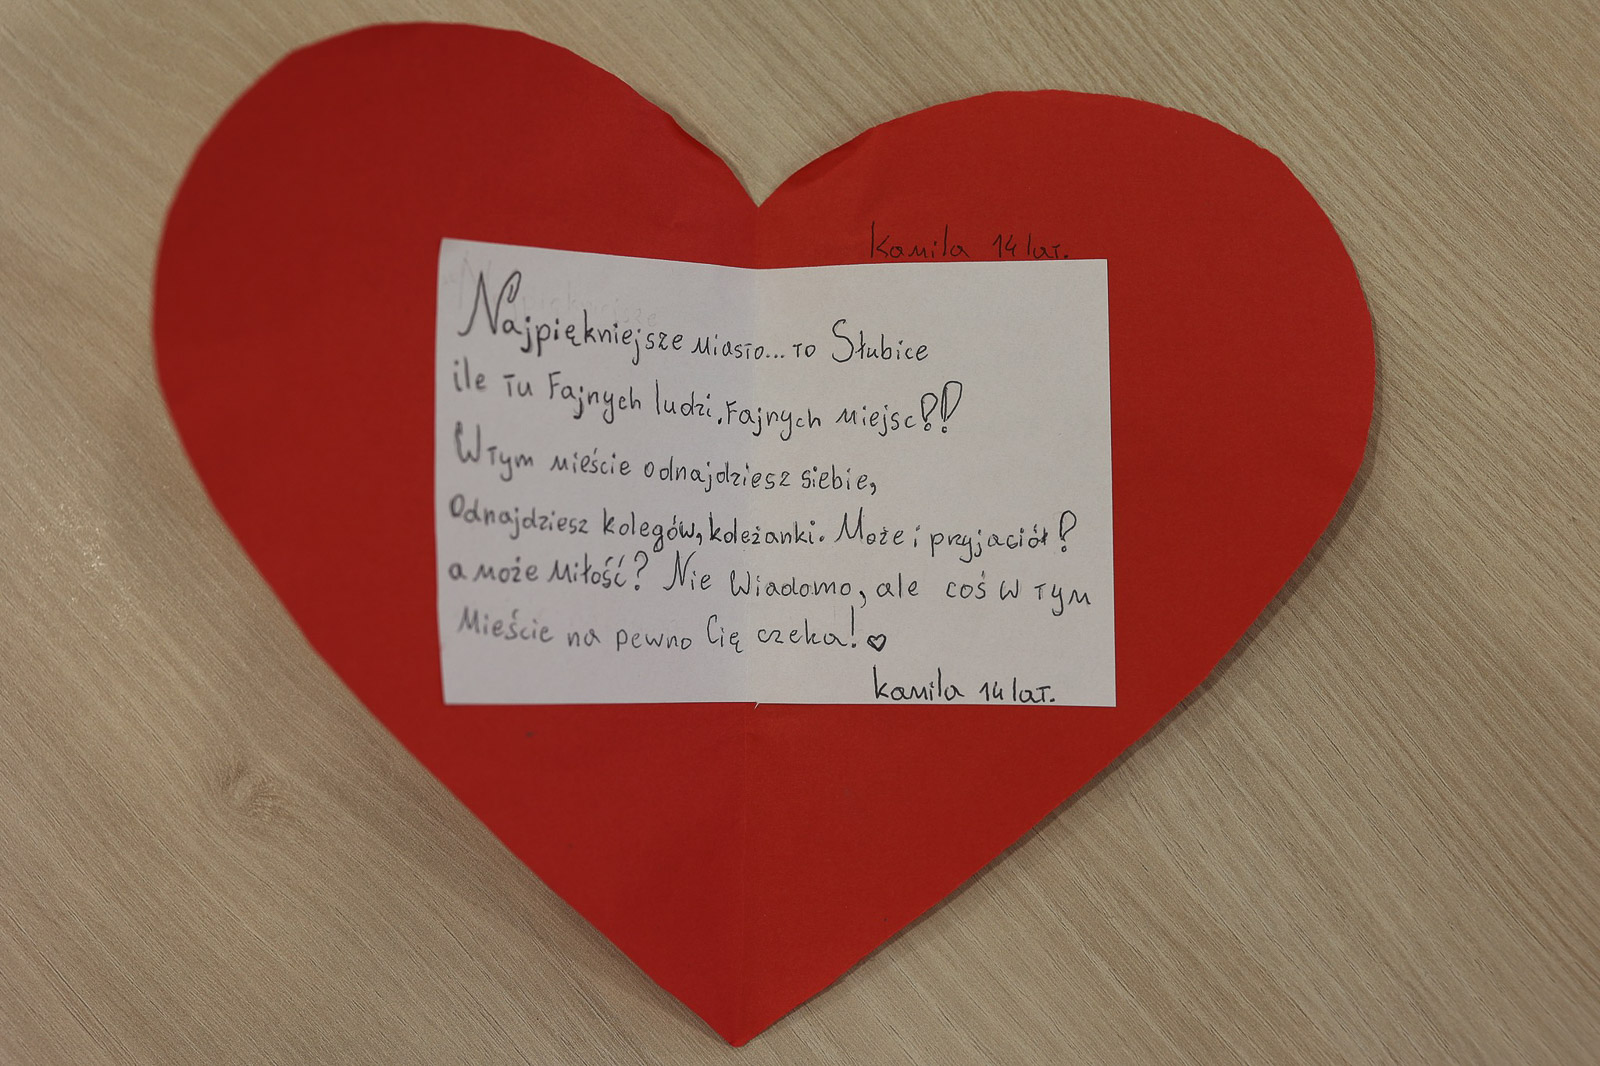 Kamila 14 lat.
Najpiękniejsze miasto... to Słubice
ile tu Fajnych ludzi. Fajnych miejsc!!
W tym mieście odnajdziesz siebie,
Odnajdziesz kolegów, koleżanki. Może i przyjaciół?
a może Miłość? Nie Wiadomo, ale coś w tym
Mieście na pewno Cię czeka! ♡
Kamila 14 lat.